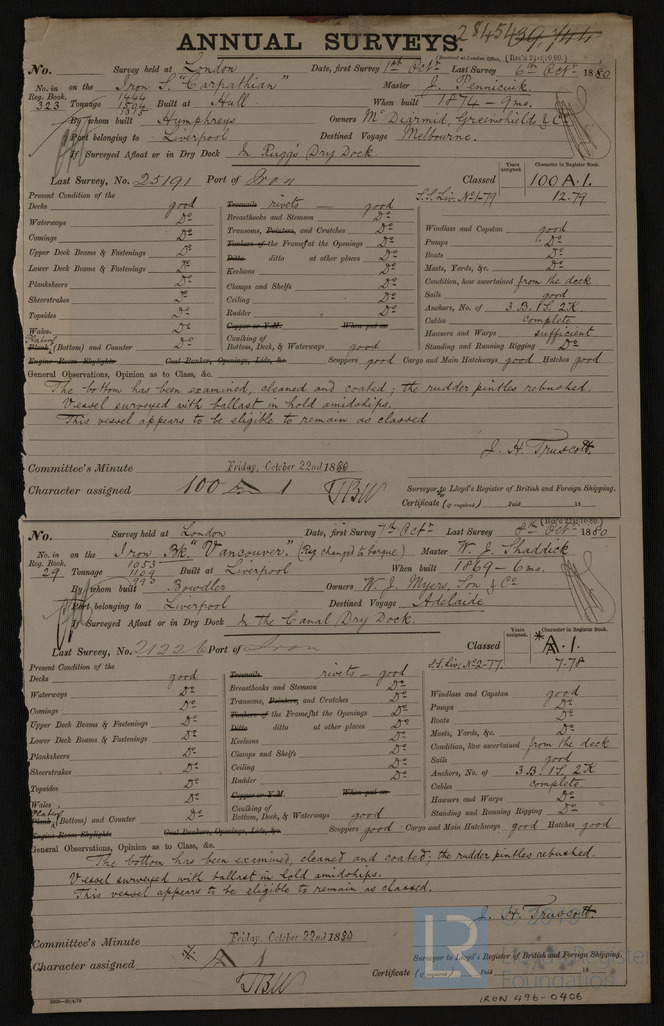 28454 39,744
ANNUAL SURVEYS.
(Received at London Office, (Rec'd 21/10/80.)
No. Survey held at London Date, first Survey 1st Octr Last Survey 6th Octr 1880
No. in on the Iron S. "Carpathian" Master J. Pennicuik
Reg. Book. 1444
323 Tonnage 1594 Built at Hull When built 1874 - 9mo.
1375
By whom built Humphreys Owners McDiarmid, Greenshields & Co
Port belonging to Liverpool Destined Voyage Melbourne.
If Surveyed Afloat or in Dry Dock In Rugg's Dry Dock.
Years assigned. Character in Register Book.
Last Survey, No. 25191 Port of Iron Classed 100 A.1.
S.S. Liv. No 1-79 12.79
Present Condition of the
Decks good Treenails rivets good
Waterways Do Breasthooks and Stemson Do Windlass and Capstan good
Comings Do Transoms, Pointers, and Crutches Do Pumps Do
Upper Deck Beams & Fastenings Do Timbers of the Frames at the Openings Do Boats Do
Lower Deck Beams & Fastenings Do Ditto ditto at other places Do Masts, Yards, &c. Do
Planksheers Do Keelsons Do Condition, how ascertained from the deck
Sheerstrakes Do Clamps and Shelfs Do Sails good
Topsides Do Ceiling Do Anchors, No. of 3.B.1S.2K.
Wales Do Rudder Do Cables complete
Plating Copper or Y.M. When put on Hawsers and Warps sufficient
Plank (Bottom) and Counter Do Caulking of Bottom, Deck, & Waterways good Standing and Running Rigging Do
Engine Room Skylights Coal Bunker, Openings, Lids, &c. Scuppers good Cargo and Main Hatchways good Hatches good
General Observations, Opinion as to Class, &c.
The bottom has been examined, cleaned and coated; the rudder pintles rebushed.
Vessel surveyed with ballast in hold amidships.
This vessel appears to be eligible to remain as classed
J. H. Truscott
Committee's Minute Friday, October 22nd 1880
Character assigned 100 A 1 TBW Surveyor to Lloyd's Register of British and Foreign Shipping.
Certificate (if required) Paid 18
(Rec'd 21/10/80.)
No. Survey held at London Date, first Survey 7th Octr Last Survey 8th Octr 1880
No. in on the Iron Bk. "Vancouver." (Rig changed to barque) Master W. J. Shaddick
Reg. Book. 1053
29 Tonnage 1109 Built at Liverpool When built 1869 - 6mo.
990
By whom built Bowdler Owners W. J. Myers, Son & Co
Port belonging to Liverpool Destined Voyage Adelaide
If Surveyed Afloat or in Dry Dock In the Canal Dry Dock.
Years assigned. Character in Register Book.
Last Survey, No. 21226 Port of Iron Classed *A.1.
S.S. Liv. No 2-77. 7-78
Present Condition of the
Decks good Treenails rivets - good
Waterways Do Breasthooks and Stemson Do Windlass and Capstan good
Comings Do Transoms, Pointers, and Crutches Do Pumps Do
Upper Deck Beams & Fastenings Do Timbers of the Frames at the Openings Do Boats Do
Lower Deck Beams & Fastenings Do Ditto ditto at other places Do Masts, Yards, &c. Do
Planksheers Do Keelsons Do Condition, how ascertained from the deck
Sheerstrakes Do Clamps and Shelfs Do Sails good
Topsides Do Ceiling Do Anchors, No. of 3.B.1S.2K
Wales Do Rudder Do Cables complete
Plating Copper or Y.M. When put on Hawsers and Warps Do
Plank (Bottom) and Counter Do Caulking of Bottom, Deck, & Waterways good Standing and Running Rigging Do
Engine Room Skylights Coal Bunkers, Openings, Lids, &c. Scuppers good Cargo and Main Hatchways good Hatches good
General Observations, Opinion as to Class, &c.
The bottom has been examined, cleaned and coated; the rudder pintles rebushed.
Vessel surveyed with ballast in hold amidships.
This vessel appears to be eligible to remain as classed.
J. H. Truscott
Committee's Minute Friday, October 22nd 1880
Character assigned A 1 TBW Surveyor to Lloyd's Register of British and Foreign Shipping.
Certificate (if required) Paid 18
LR Foundation
IRON 496-0406